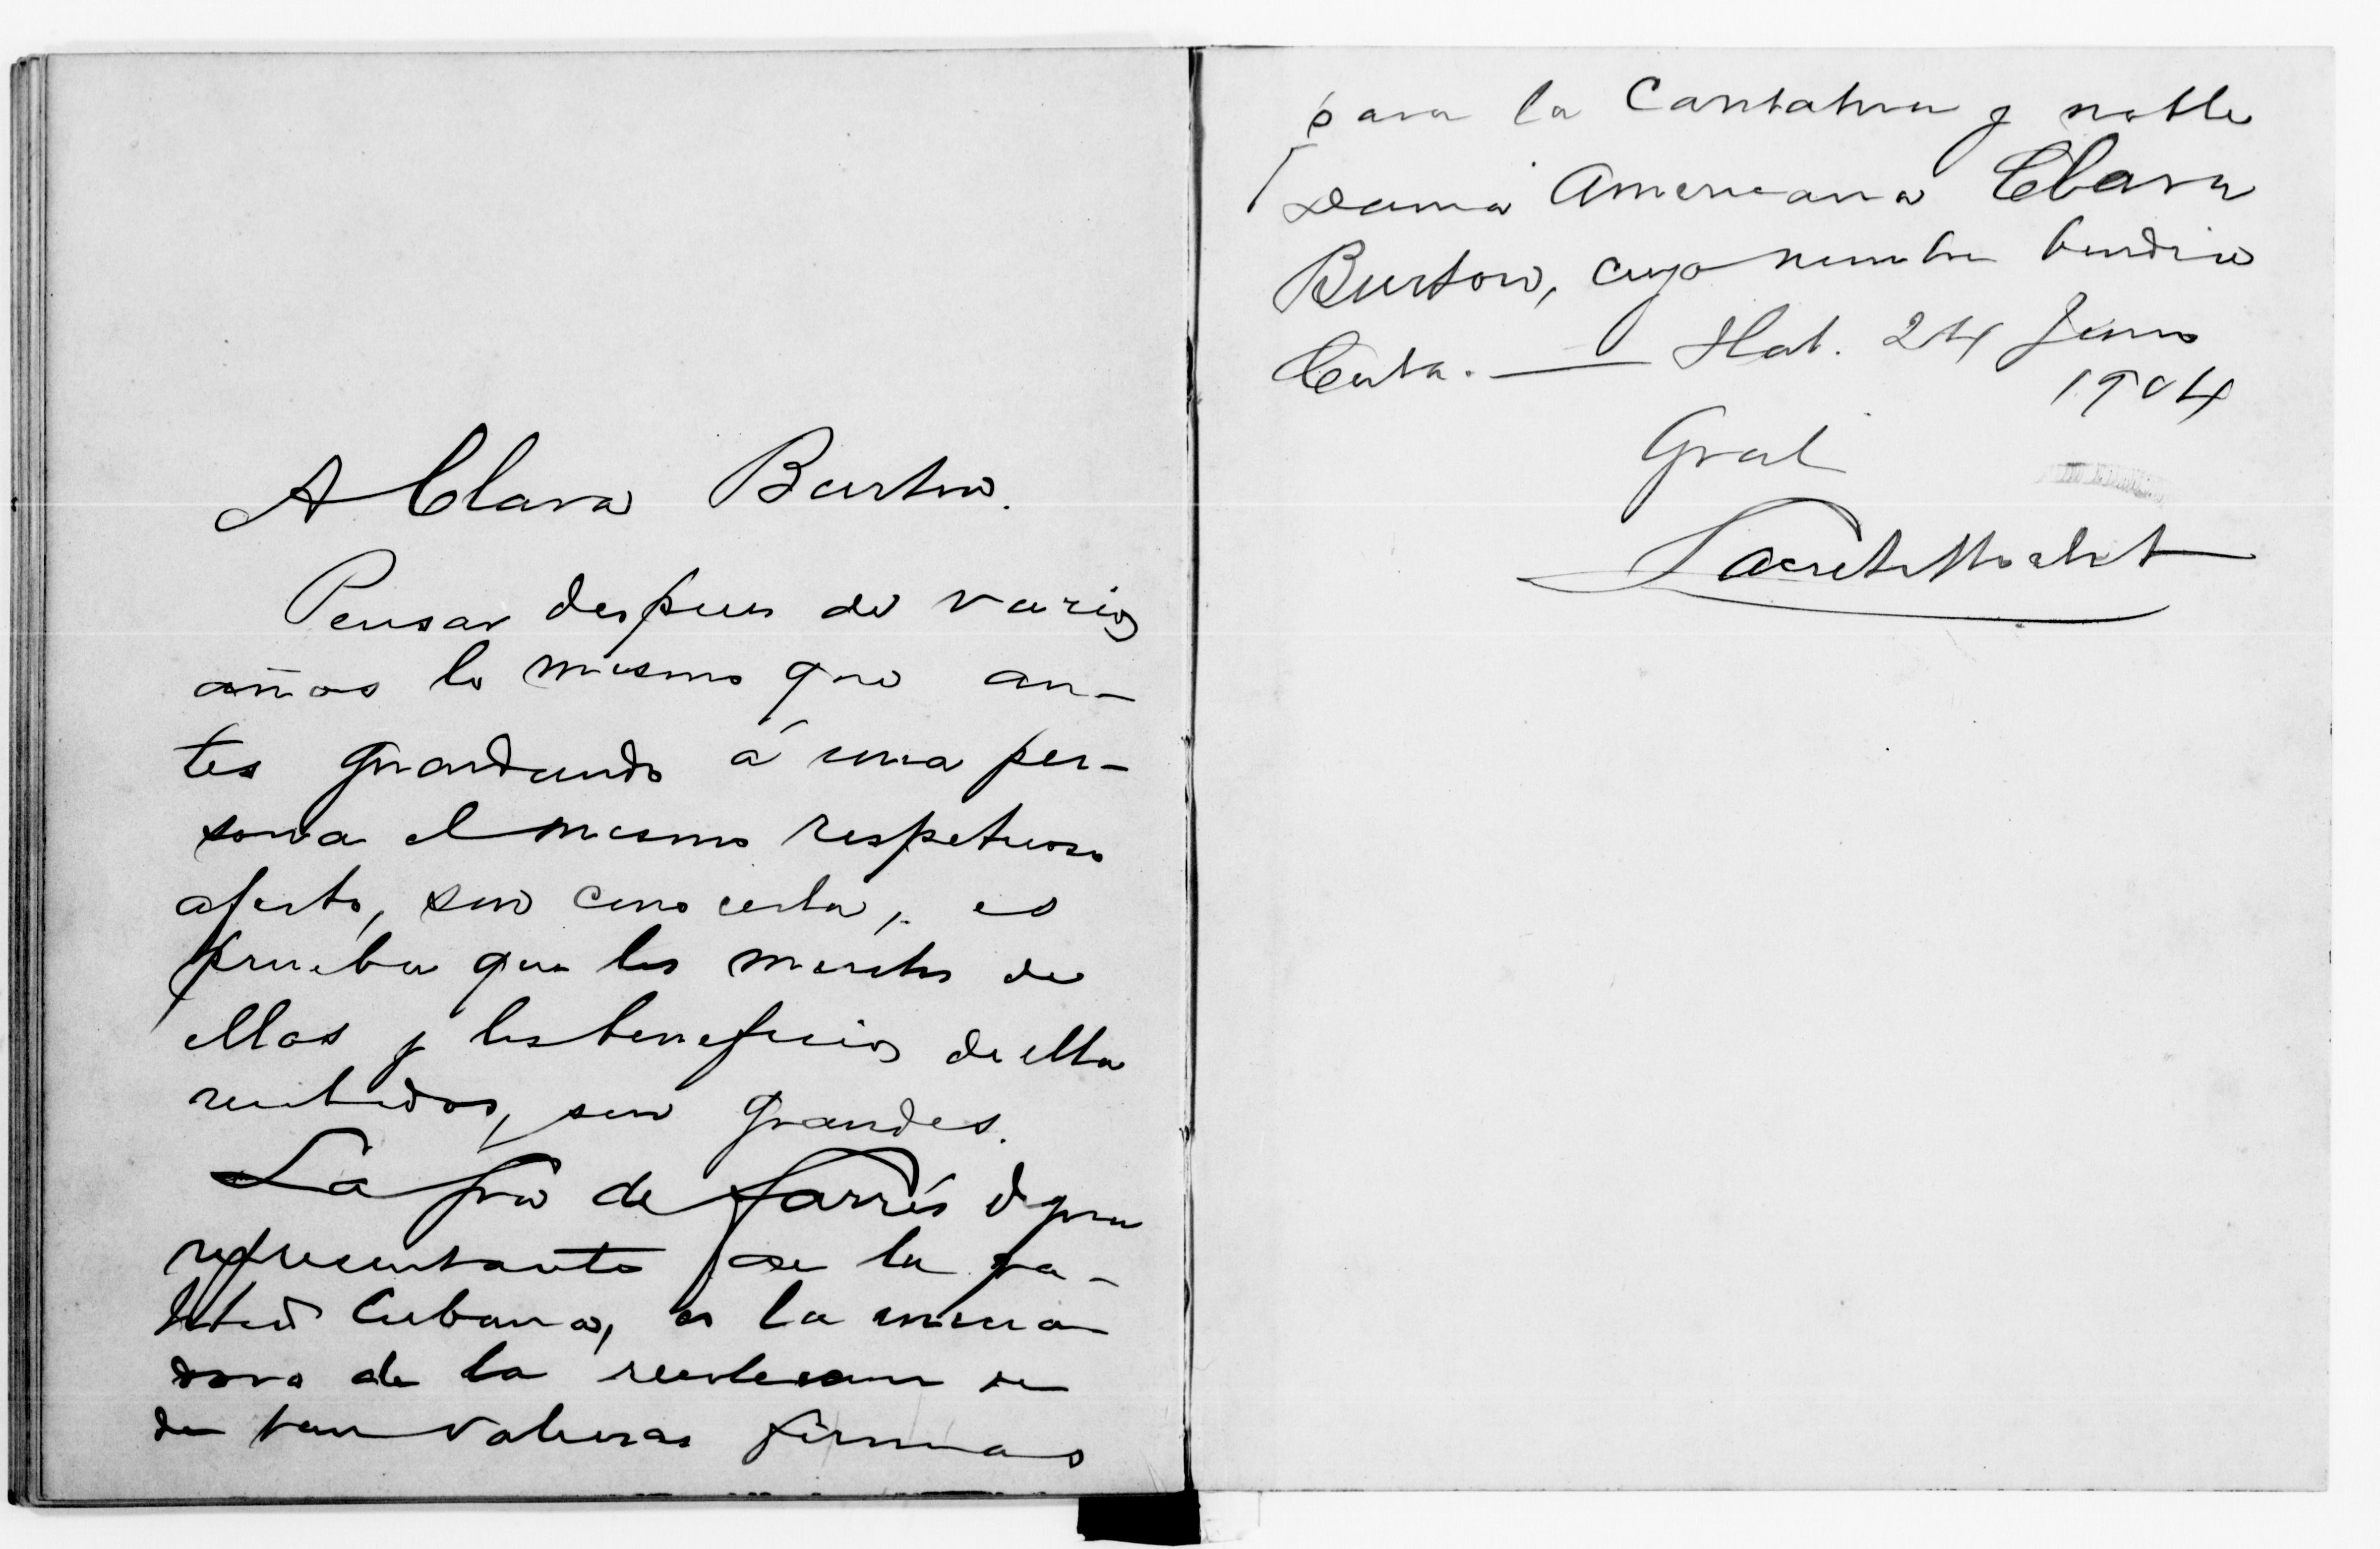 A Clara Barton.
Pensar despues de varios
años lo mismo que an-
tes guardando á una per-
sona el mismo respetuoso
afecto, sin conocerla, es
prueba que los meritos de
ellas y los beneficios de ella
recibidos, son grandes.
La Sra de Farrés digna
representante de la ga-
Cubana, es la inicia
dora de la
de tan valiosas firmas
para la Caritativa y noble
Dama Americana Clara
Burton, cuyo nombre bendice
Cuba. — Hab. 24 Junio
1904
Gral
Lacret Morlot